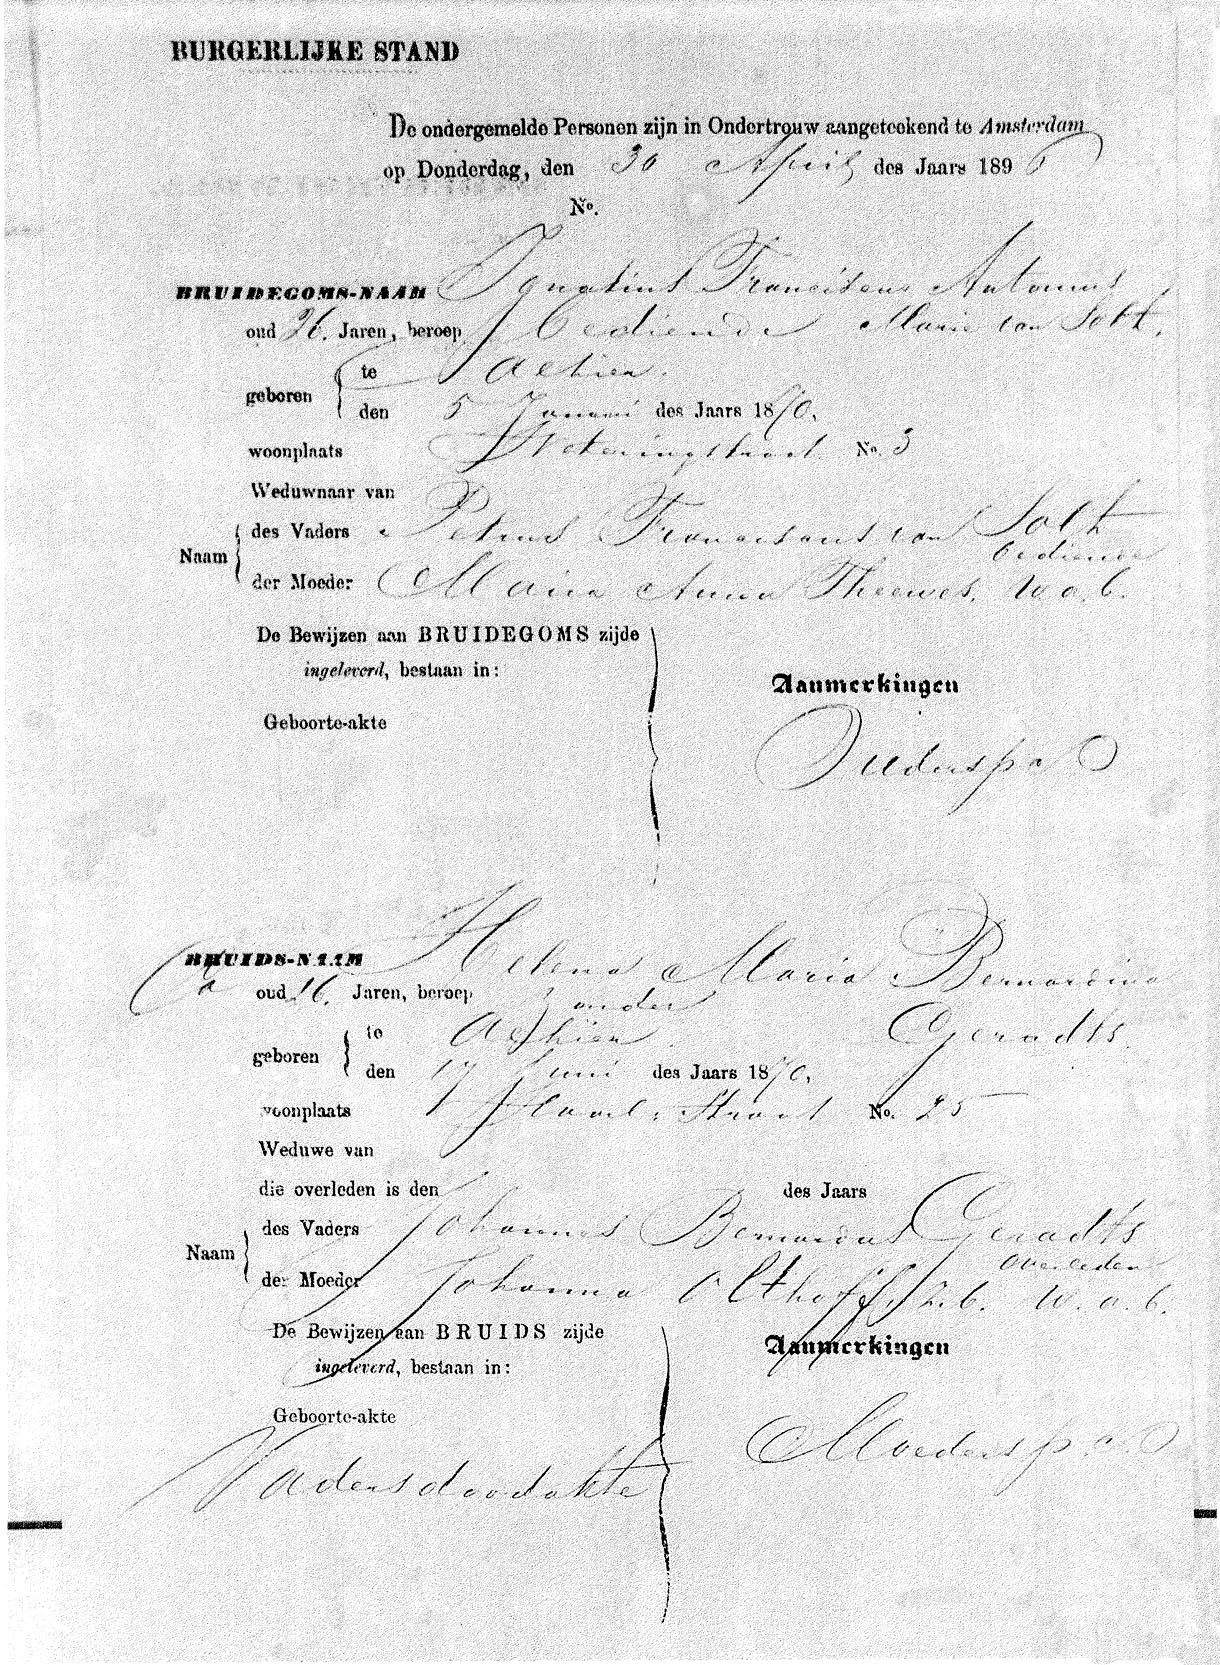 BURGERLIJKE STAND
De ondergemelde Personen zijn in Ondertrouw aangeteekend te Amsterdam
op Donderdag, den 30 April des Jaars 1896
No.
BRUIDEGOMS-NAAM Ignatius Franciscus Antonius
oud 26. Jaren, beroep bediende Marie van
geboren te alhier.
den 5 Januari des Jaars 1870.
woonplaats Weteringstraat No. 3
Weduwnaar van
Naam des Vaders Petrus Franciscus van
bediende
der Moeder Maria Anna Theewes, w.a.b.
De Bewijzen aan BRUIDEGOMS zijde
ingeleverd, bestaan in:
Aanmerkingen
Geboorte-akte
Ouders p a
BRUIDS-NAAM Helena Maria Bernardina
oud Jaren, beroep zonder
Geradts.
geboren te alhier.
den 17 Juni des Jaars 1870.
woonplaats Straat No. 25
Weduwe van
die overleden is den des Jaars
Naam des Vaders Johannes Bernardus Geradts
overleden
der Moeder Johanna Olthoff, z.b. w.a.b.
De Bewijzen aan BRUIDS zijde
Aanmerkingen
ingeleverd, bestaan in:
Geboorte-akte
Moeders p a.
Vadersdoodakte